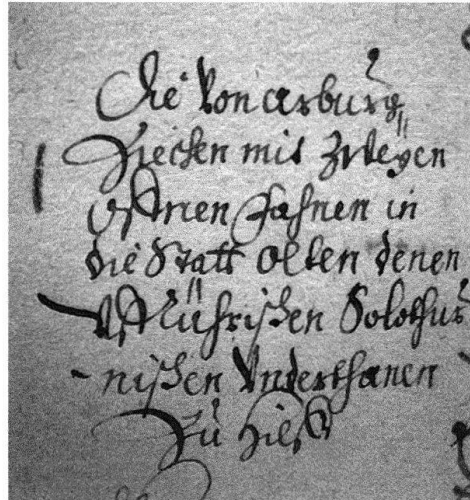 Die von arburg
Ziechen mit Zweyen
offnen Fahnen in
die Statt Olten denen
Uffrührischen Solothur
-nischen Underthanen
Zu Hilff